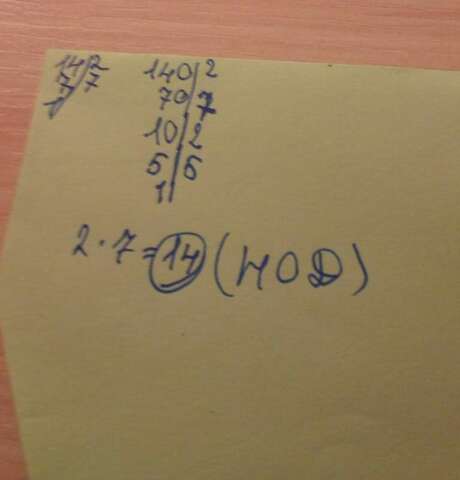 14|2
7|7
1|
140|2
70|7
10|2
5|5
1|
2·7=14 (НОД)